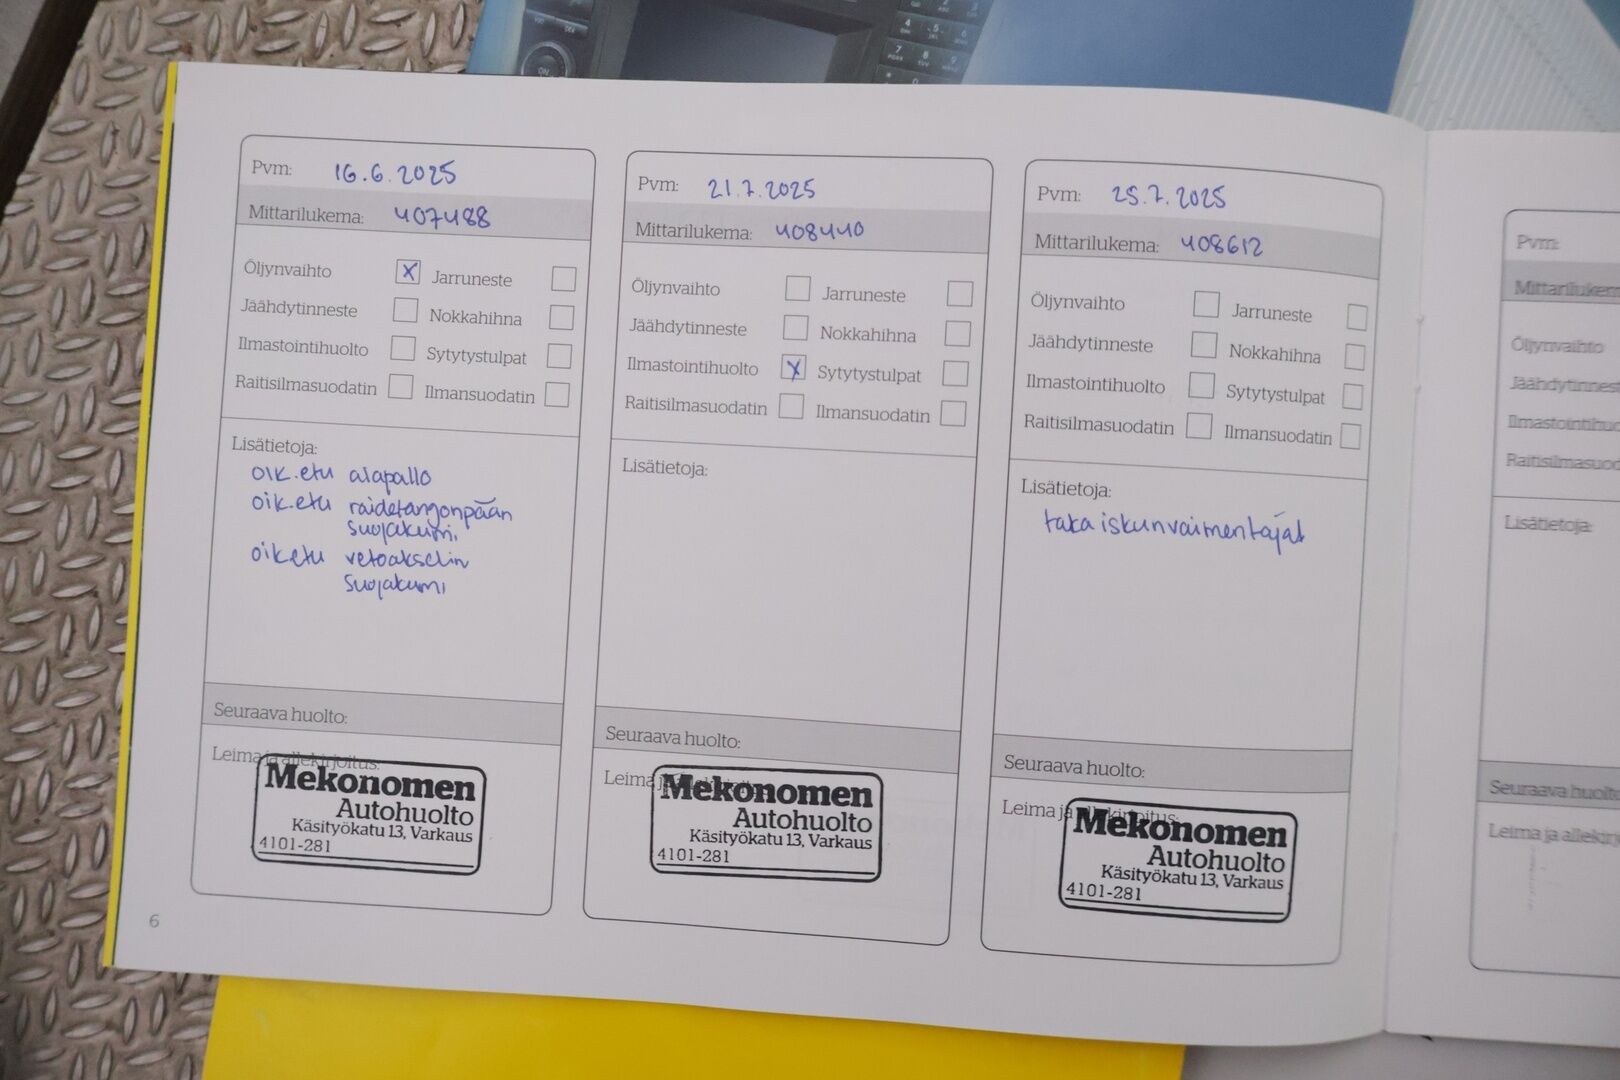 Pvm: 16.6.2025
Mittarilukema: 407488
Öljynvaihto X Jarruneste
Jäähdytinneste Nokkahihna
Ilmastointihuolto Sytytystulpat
Raitisilmasuodatin Ilmansuodatin
Lisätietoja:
oik.etu alapallo
oik.etu raidetangonpään
suojakumi
oik etu vetoakselin
suojakumi
Seuraava huolto:
Leima ja allekirjoitus:
Mekonomen
Autohuolto
Käsityökatu 13, Varkaus
4101-281
6
Pvm: 21.7.2025
Mittarilukema: 408440
Öljynvaihto Jarruneste
Jäähdytinneste Nokkahihna
Ilmastointihuolto X Sytytystulpat
Raitisilmasuodatin Ilmansuodatin
Lisätietoja:
Seuraava huolto:
Leima ja allekirjoitus:
Mekonomen
Autohuolto
Käsityökatu 13, Varkaus
4101-281
Pvm: 25.7.2025
Mittarilukema: 408612
Öljynvaihto Jarruneste
Jäähdytinneste Nokkahihna
Ilmastointihuolto Sytytystulpat
Raitisilmasuodatin Ilmansuodatin
Lisätietoja:
taka iskunvaimentajat
Seuraava huolto:
Leima ja allekirjoitus:
Mekonomen
Autohuolto
Käsityökatu 13, Varkaus
4101-281
Pvm:
Mittarilukem
Öljynvaihto
Jäähdytinnest
Ilmastointihuo
Raitisilmasuod
Lisätietoja:
Seuraava huolto
Leima ja allekirj